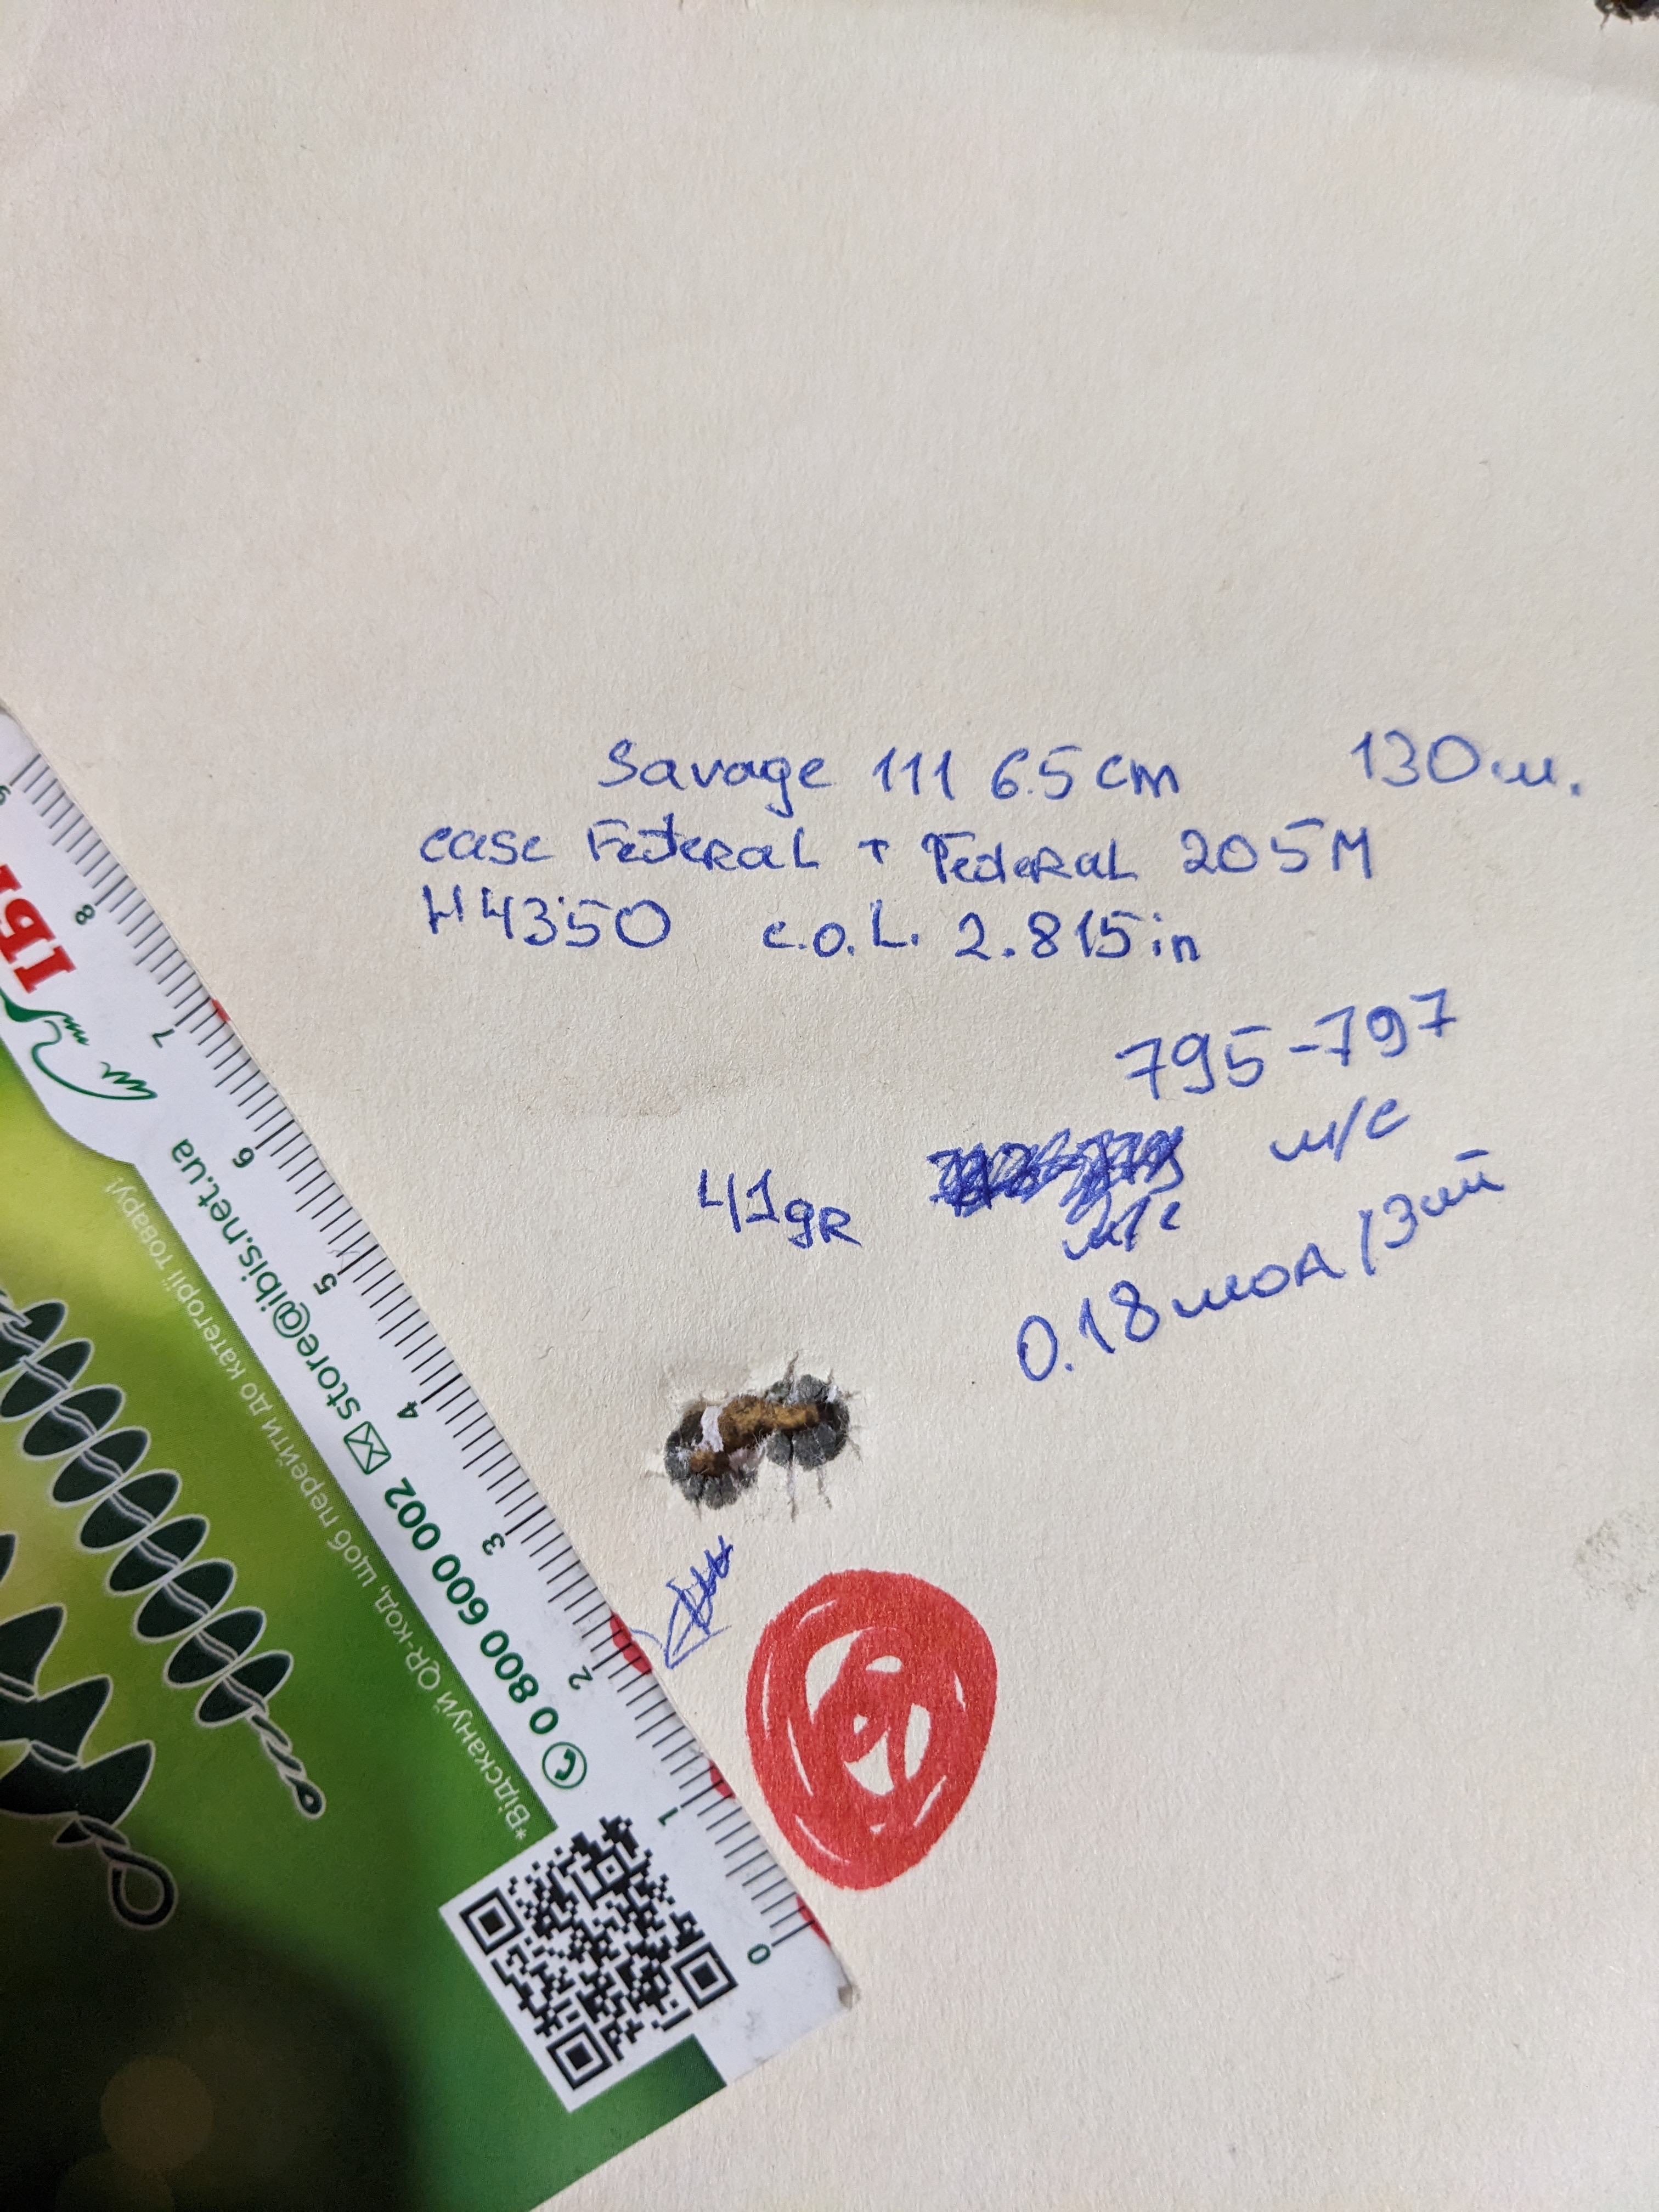 Savage 111 6.5 cm 130 м.
case Federal + Federal 205M
H4350 c.o.L. 2.815 in
795-797
м/с
41 gR
м/с
0.18 моа /3 шт
ІБІ
store@ibis.net.ua
0 800 600 002
*Відскануй QR-код, щоб перейти до категорії товару!
0
1
2
3
4
5
6
7
8
9